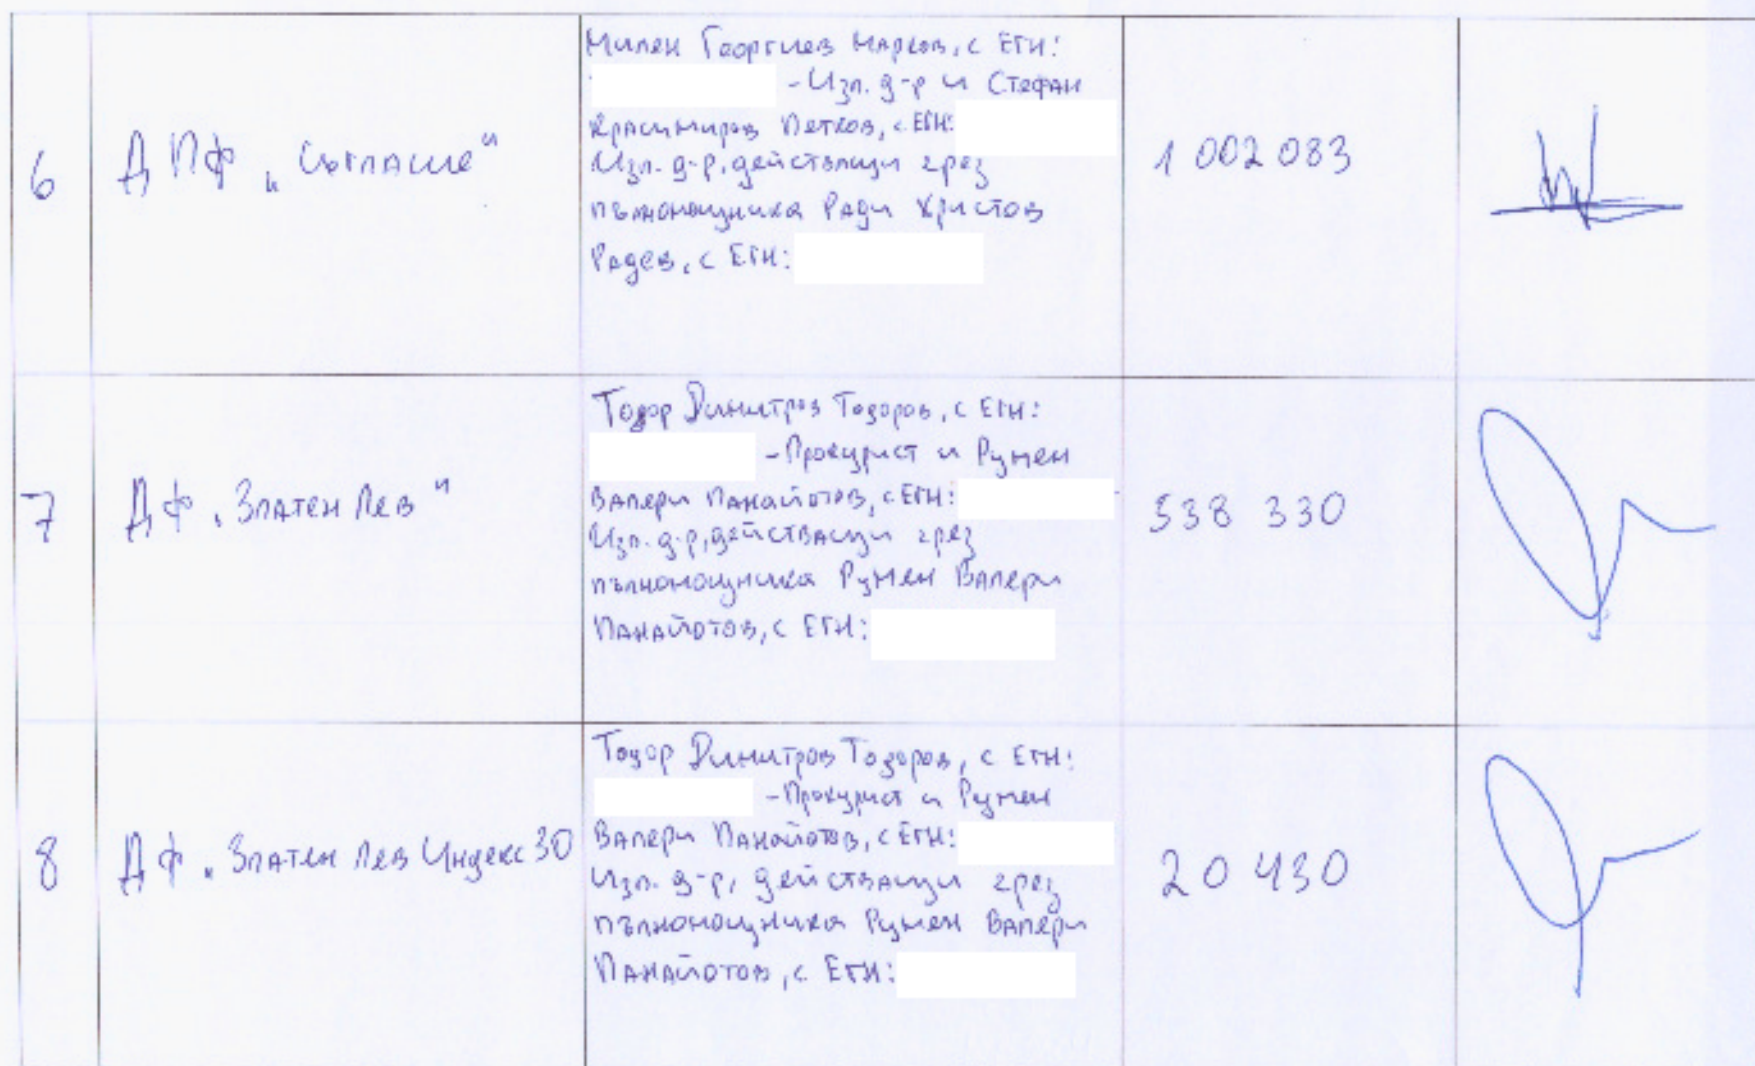 6
ДПФ „Съгласие"
Милен Георгиев Марков, с ЕГН:
- Изп. д-р и Стефан
Красимиров Петков, с ЕГН:
Изп. д-р, действащи чрез
пълномощника Ради Христов
Радев, с ЕГН:
1 002 083
7
ДФ „Златен лев"
Тодор Димитров Тодоров, с ЕГН:
- Прокурист и Румен
Валери Панайотов, с ЕГН:
Изп. д-р, действащи чрез
пълномощника Румен Валери
Панайотов, с ЕГН:
538 330
8
ДФ „Златен лев Индекс 30
Тодор Димитров Тодоров, с ЕГН:
- Прокурист и Румен
Валери Панайотов, с ЕГН:
Изп. д-р, действащи чрез
пълномощника Румен Валери
Панайотов, с ЕГН:
20 430